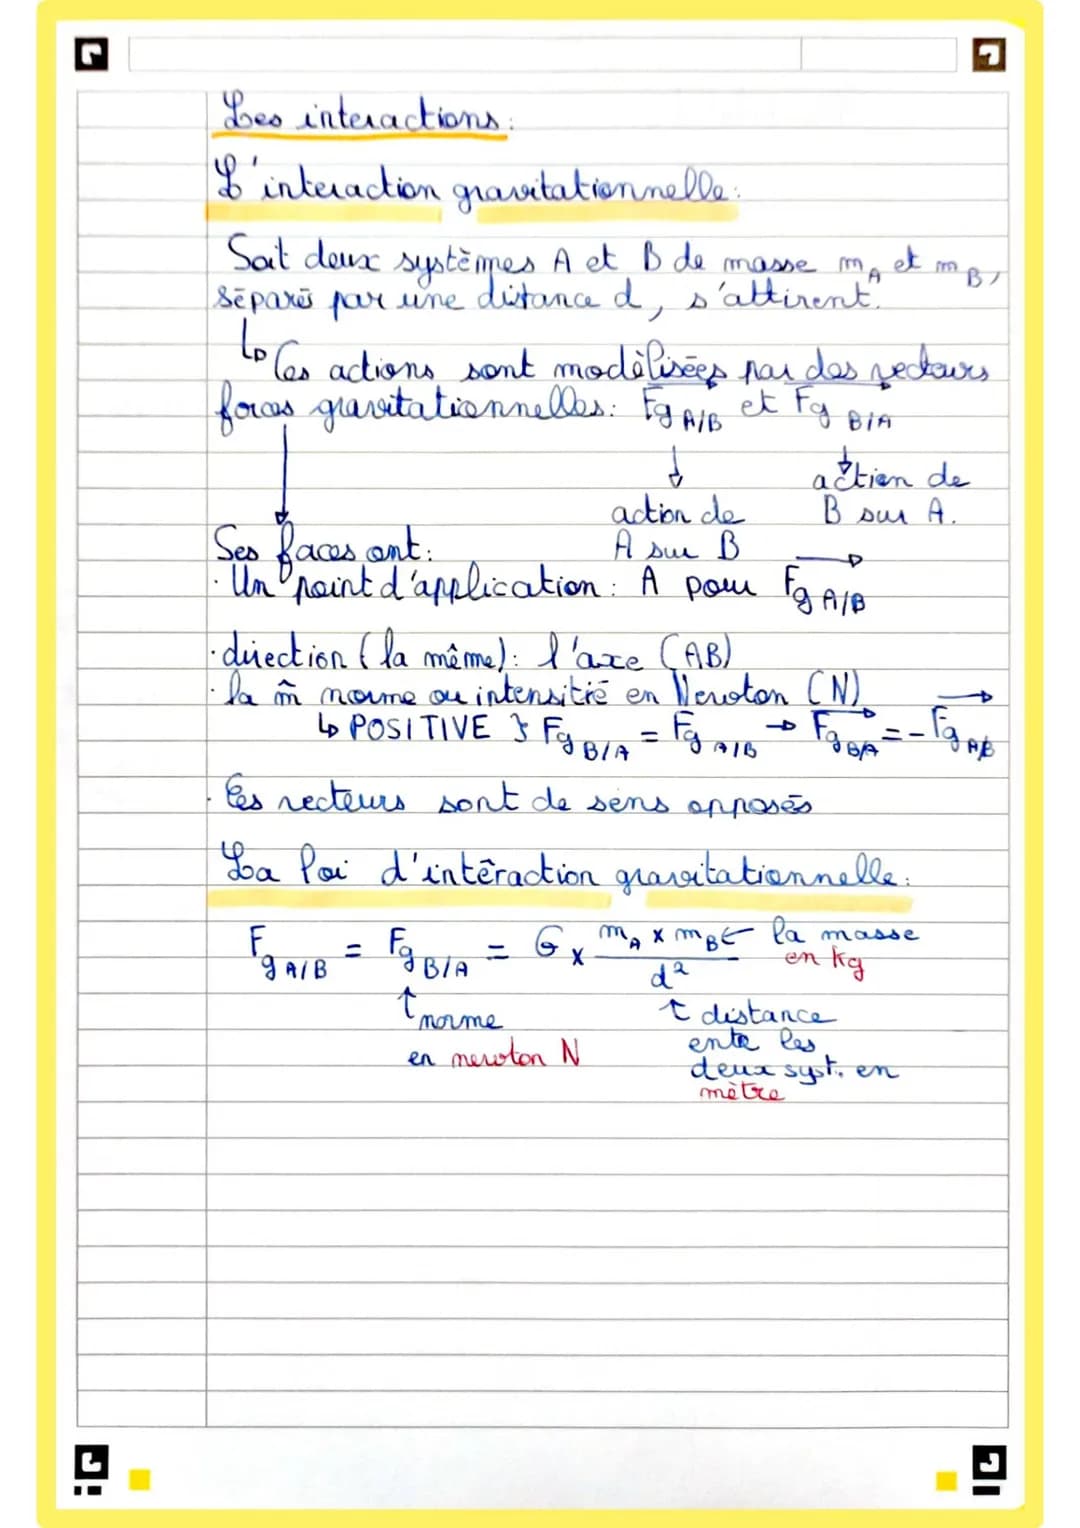 Les interactions:
L'interaction gravitationnelle:
Soit deux systèmes A et B de masse mA et mB,
séparé par une distance d, s'attirent.
↳ Ces actions sont modèlisées par des vecteurs
forces gravitationnelles: Fg A/B et Fg B/A
action de
B sur A.
action de
A sur B
Ses forces ont:
· Un point d'application: A pour Fg A/B
· direction (la même): l'axe (AB)
· la m̂ norme ou intensitié en Newton (N)
↳ POSITIVE } Fg B/A = Fg A/B → Fg B/A = - Fg A/B
· Les vecteurs sont de sens opposés
La loi d'intéraction gravitationnelle:
Fg A/B = Fg B/A = G x mA x mB ← la masse
en kg
d²
↑ norme
en newton N
↑ distance
ente les
deux syst. en
mètre